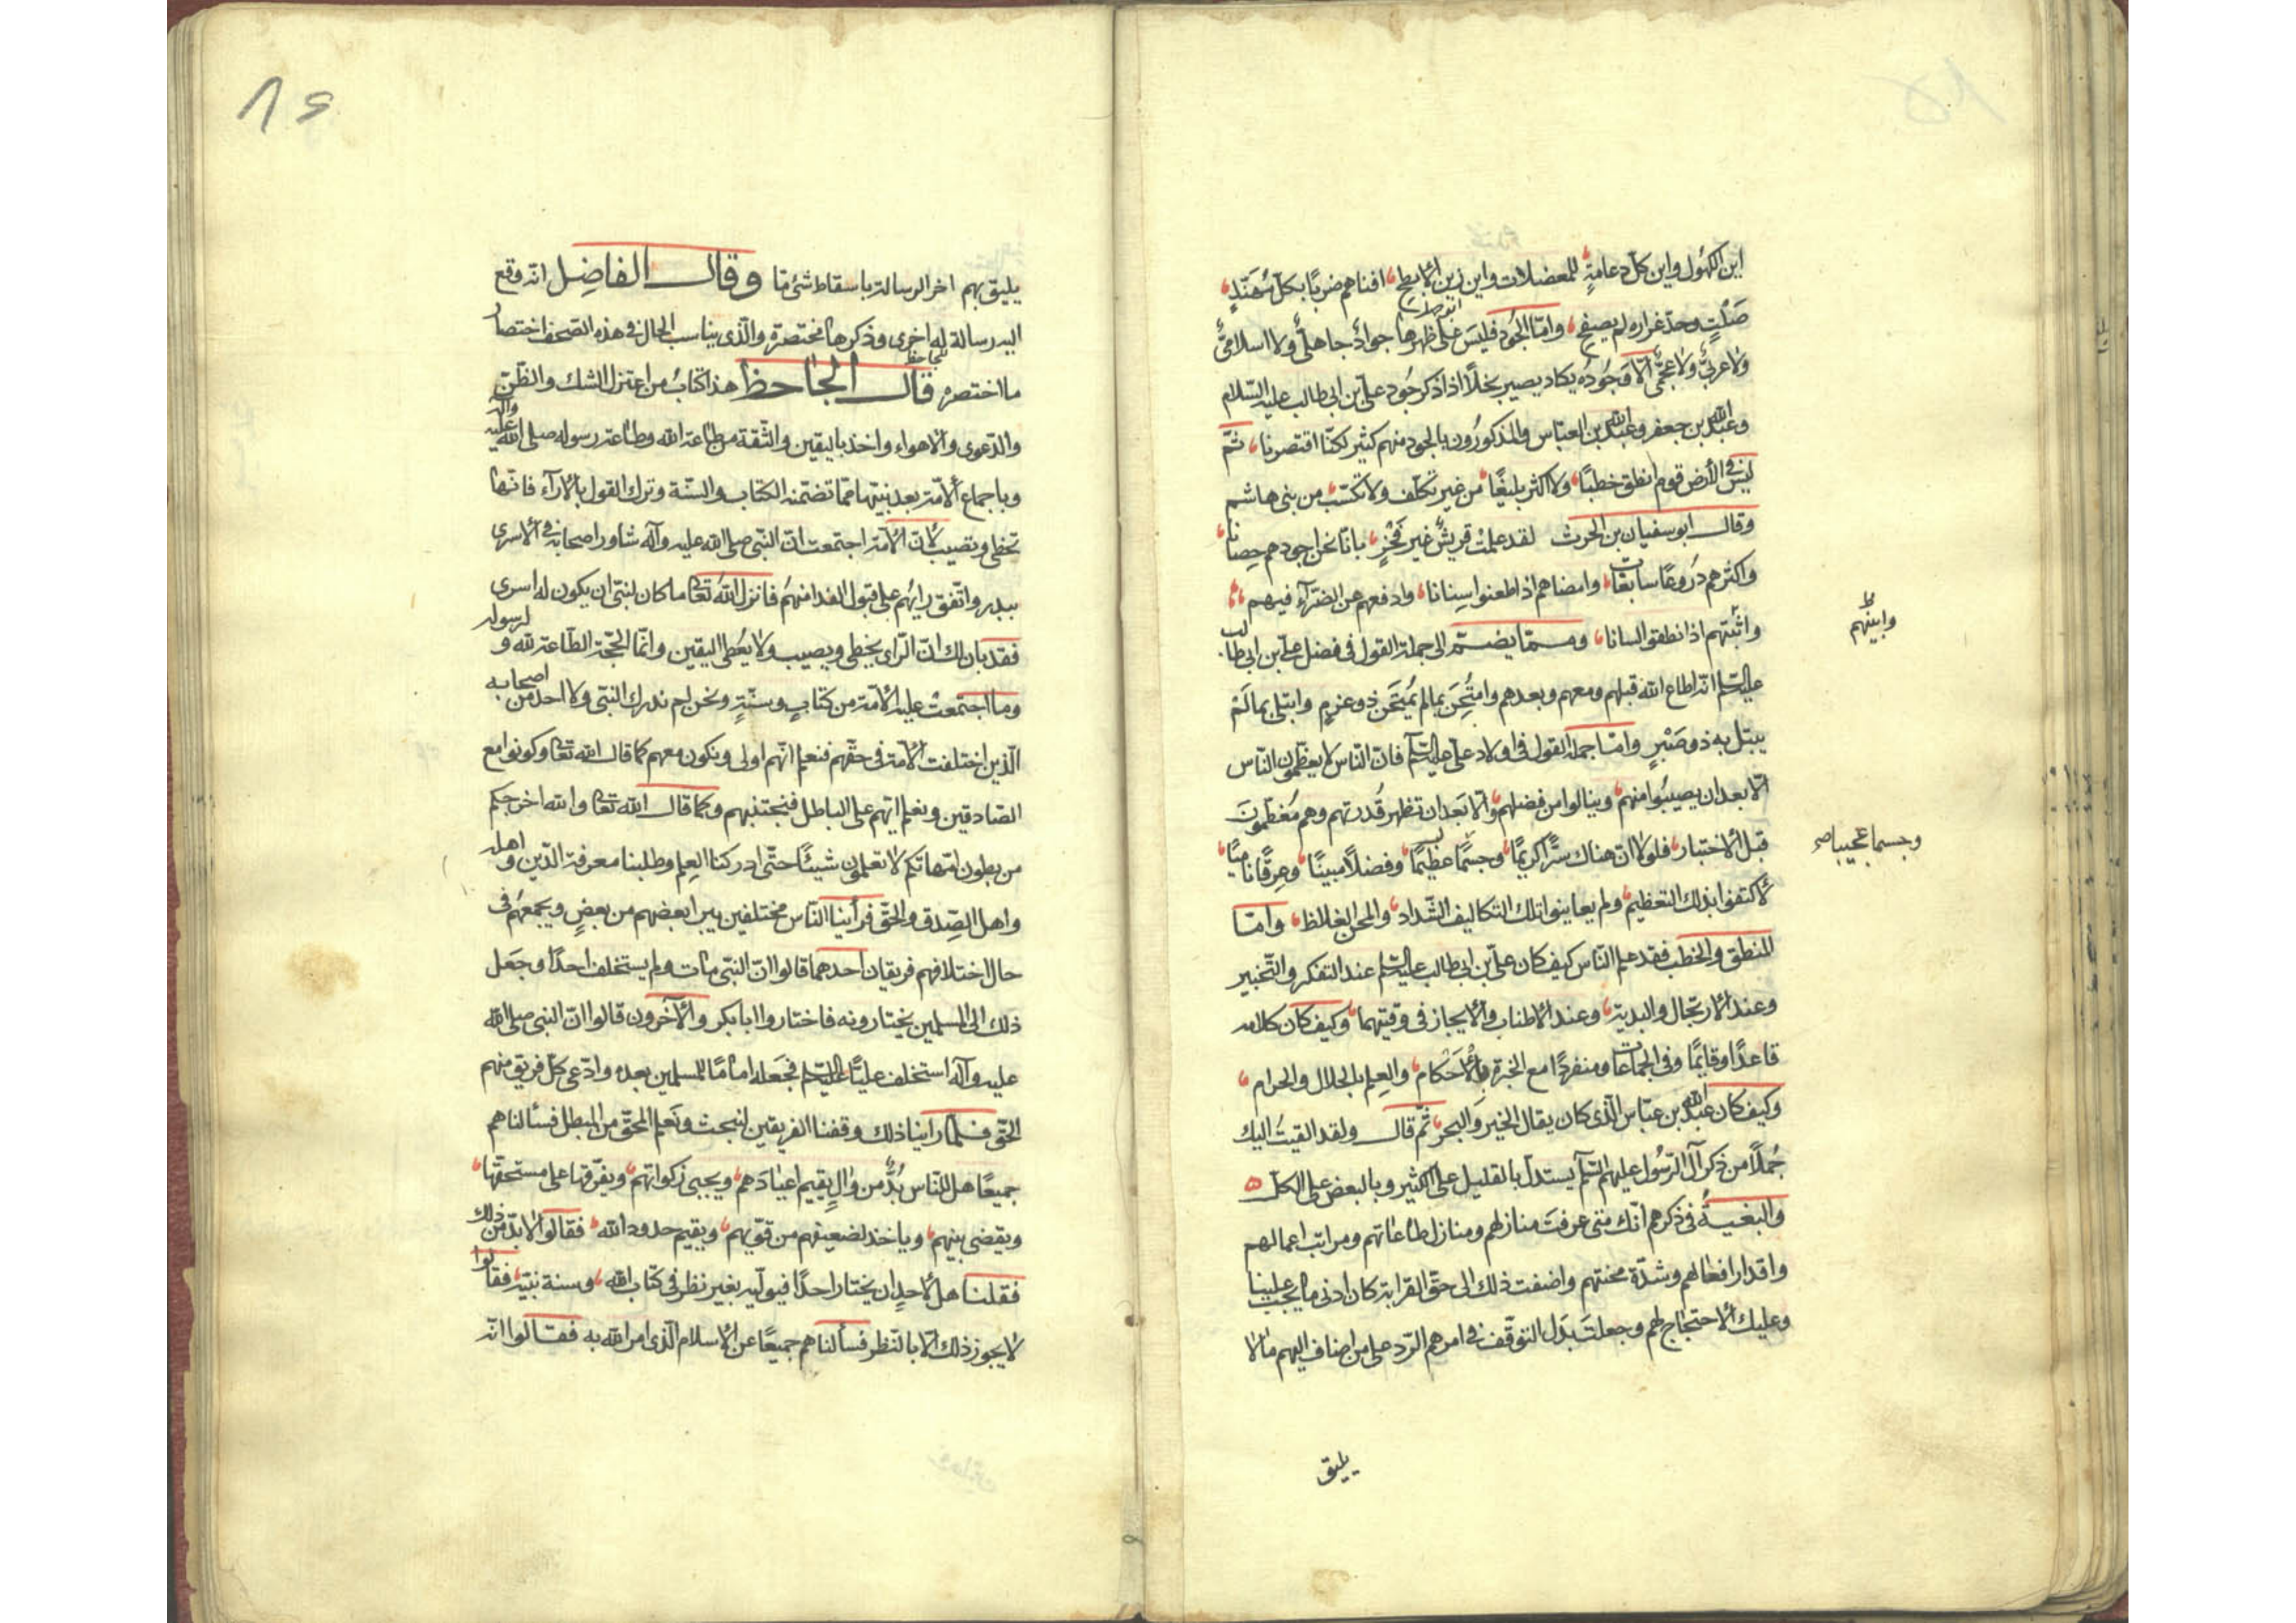 اين الكهول واين كل دعامة للمعضلات واين زين الابطح افناهم ضربا بكل مهند
صلت وحد غراره لم يصفح واما الجود فليس على ظهرها جواد جاهلى ولا اسلامى
ولا عربى ولا عجمى الا وجوده يكاد يصير بخلا اذا ذكر جود على بن ابى طالب عليه السلام
وعبدالله بن جعفر وعبدالله بن العباس والمذكورون بالجود منهم كثير لكنا اقتصرنا ثم
ليس فى الارض قوم انطق خطيبا ولا اكثر بليغا من غير تكلف ولا تكسب من بنى هاشم
وقال ابوسفيان بن الحرث لقد علمت قريش غير فخر بانا نحن اجودهم حصانا
واكثرهم دروعا سابغات وامضاهم اذا طعنوا سنانا وادفعهم عن الضراء فيهم
وابينهم
واثبتهم اذا نطقوا لسانا ومما يضم الى جملة القول فى فضل على بن ابى طالب
عليه السلام انه اطاع الله قبلهم ومعهم وبعدهم وامتحن بما لم يمتحن ذو عزم وابتلى بما لم
يبتل به ذو صبر واما جملة القول فى اولاد على عليه السلام فان الناس لا يعظمون الناس
الا بعد ان يصيبوا منهم وينالوا من فضلهم والا بعد ان تظهر قدرتهم وهم معظمون
قبل الاختبار فلولا ان هناك سرا كريما وجسما عظيما وفضلا مبينا وعرقا ناميا
وجسما عجيبا صح
لاكتفوا بذلك التعظيم ولم يعاينوا تلك التكاليف الشداد والمحن الغلاظ واما
المنطق والخطب فقد علم الناس كيف كان على بن ابى طالب عليه السلام عند التفكر والتحبير
وعند الارتجال والبديهة وعند الاطناب والايجاز فى وقتيهما وكيف كان كلامه
قاعدا وقايما وفى الجماعات ومنفردا مع الخبرة بالاحكام والعلم بالحلال والحرام
وكيف كان عبدالله بن عباس الذى كان يقال الخير والبحر ثم قال ولقد القيت اليك
جملا من ذكر آل الرسول عليهم السلام يستدل بالقليل على الكثير وبالبعض على الكل
والبغية فى ذكرهم انك متى عرفت منازلهم ومنازل طاعاتهم ومراتب اعمالهم
واقدار افعالهم وشدة محنتهم واضفت ذلك الى حق القرابة كان ادنى ما يجب علينا
وعليك الاحتجاج لهم وجعلت بدل التوقف فى امرهم الرد على من اضاف اليهم ما لا
يليق
٨٤
يليق بهم اخر الرسالة باسقاط شئ ما وقال الفاضل انه وقع
اليه رسالة له اخرى وذكرها مختصرة والذى يناسب الحال فى هذه الصحف اختصار
ما اختصره قال الجاحظ هذا كتاب من اعتزل الشك والظن
والدعوى والاهواء واخذ باليقين والثقة من طاعة الله وطاعة رسوله صلى الله عليه وآله
وباجماع الامة بعد نبيها مما تضمنه الكتاب والسنة وترك القول بالاراء فانها
تخطى وتصيب لان الامة اجتمعت ان النبى صلى الله عليه وآله شاور اصحابه فى الاسرى
ببدر واتفق رايهم على قبول الفدا منهم فانزل الله تعالى ما كان لنبى ان يكون له اسرى
فقد بان لك ان الراى يخطى ويصيب ولا يعطى اليقين وانما الحجة الطاعة لله ولرسوله
وما اجتمعت عليه الامة من كتاب وسنة ونحن لم ندرك النبى ولا احد من اصحابه
الذين اختلفت الامة فى حقهم فنعلم انهم اولى ونكون معهم كما قال الله تعالى وكونوا مع
الصادقين ونعلم ايهم على الباطل فنجتنبهم وكما قال الله تعالى والله اخرجكم
من بطون امهاتكم لا تعلمون شيئا حتى ادركنا العلم وطلبنا معرفة الدين واهله
واهل الصدق والحق فرأينا الناس مختلفين يبرا بعضهم من بعض ويجمعهم فى
حال اختلافهم فريقان احدهما قالوا ان النبى مات ولم يستخلف احدا وجعل
ذلك الى المسلمين يختارونه فاختاروا ابابكر والآخرون قالوا ان النبى صلى الله
عليه وآله استخلف عليا عليه السلام فجعله اماما للمسلمين بعده وادعى كل فريق منهم
الحق فلما راينا ذلك وقفنا الفريقين لنبحث ونعلم المحق من المبطل فسألناهم
جميعا هل للناس بد من وال يقيم اعيادهم ويجبى زكواتهم ويفرقها على مستحقها
ويقضى بينهم وياخذ لضعيفهم من قويهم ويقيم حدود الله فقالوا لا بد من ذلك
فقلنا هل لاحد ان يختار احدا فيوليه بغير نظر فى كتاب الله وسنة نبيه فقالوا
لا يجوز ذلك الا بالنظر فسألناهم جميعا عن الاسلام الذى امر الله به فقالوا انه